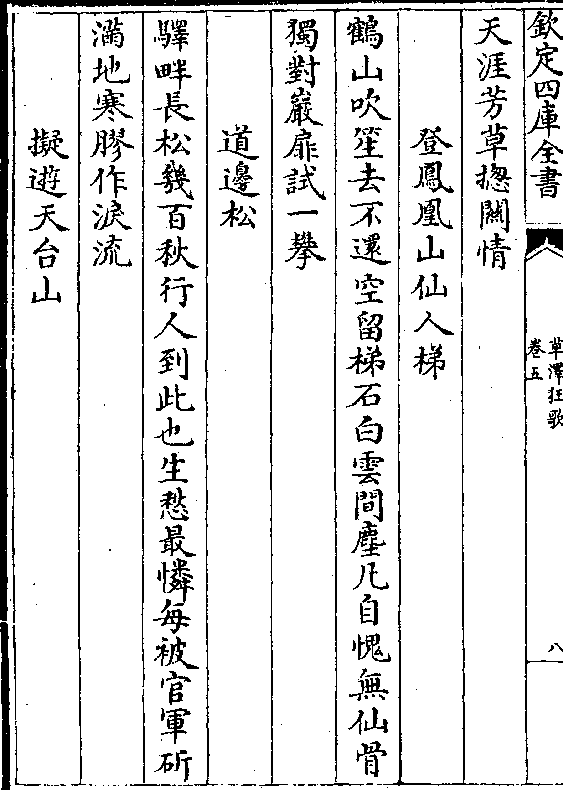 欽定四庫全書
草澤狂歌
卷五
八
天涯芳草揔關情
登鳳凰山仙人梯
鶴山吹笙去不還空留梯石白雲間塵凡自愧無仙骨
獨對巖扉試一攀
道邊松
驛畔長松幾百秋行人到此也生愁最憐每被官軍斫
滿地寒膠作淚流
擬遊天台山